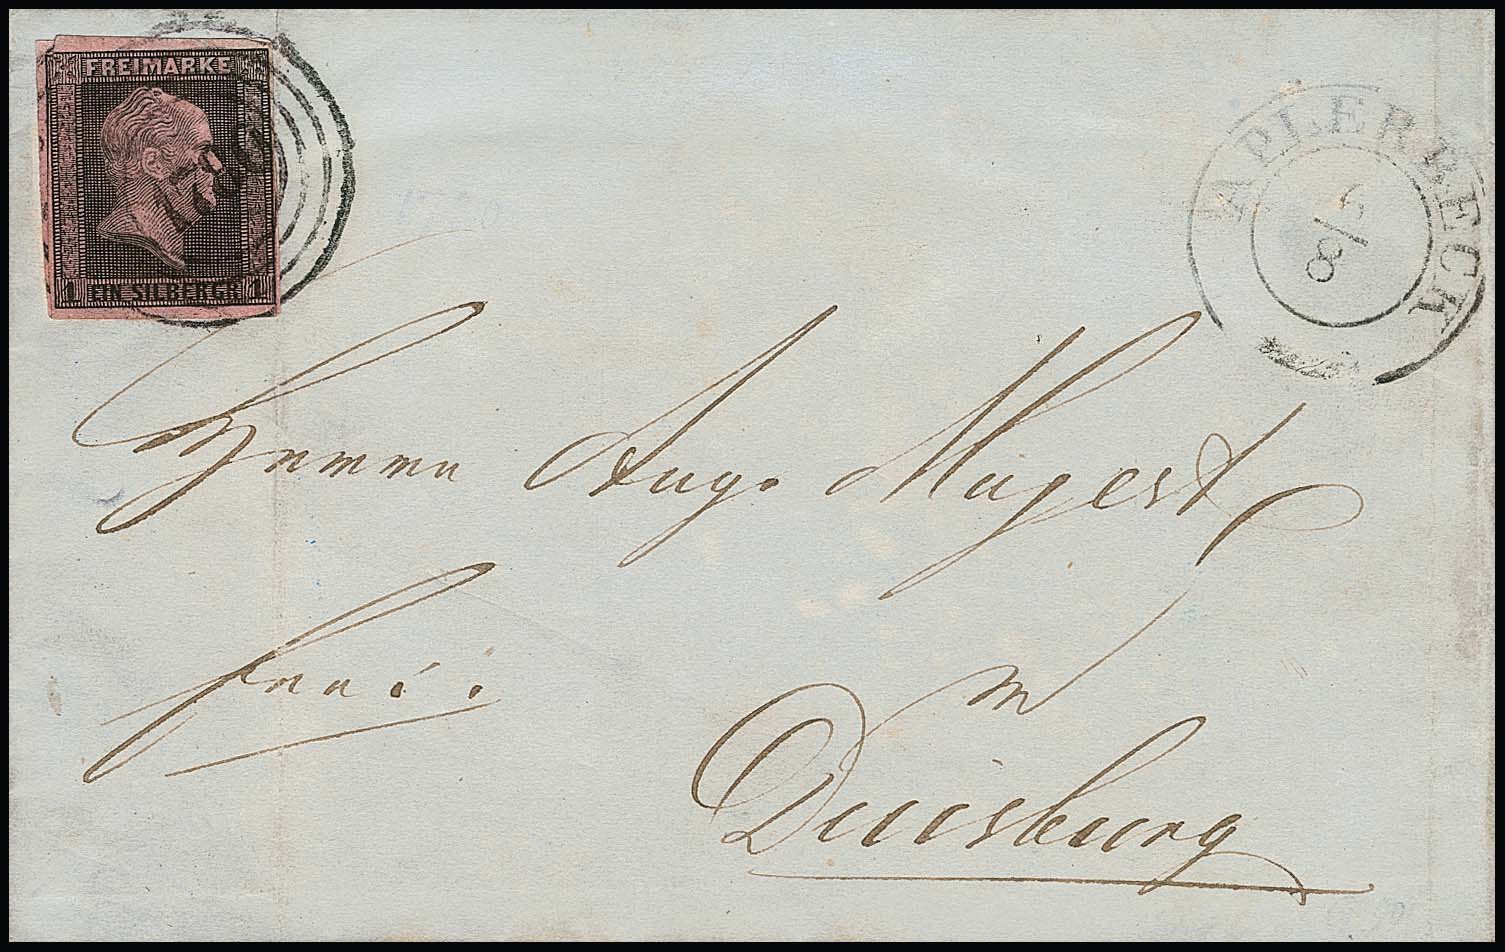 FREIMARKE
1 EIN SILBERGR. 1
APLERBECK
5/8
Herrn Aug. Mügerst
frei.
in
Duisburg